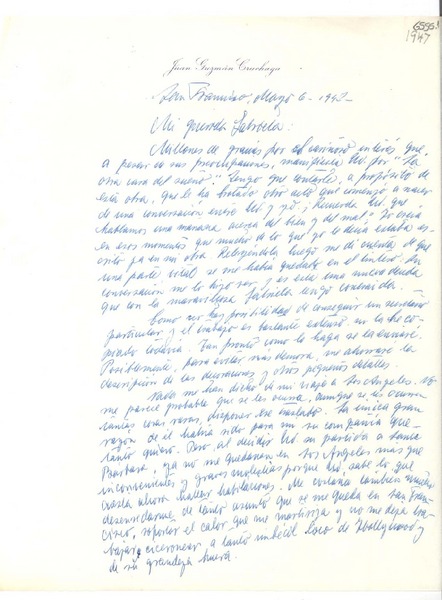 65553
1947
Juan Guzmán Cruchaga
San Francisco, Mayo 6 - 1947 -
Mi querida Gabriela:
Millones de gracias por el cariñoso interés que,
a pesar de sus preocupaciones, manifiesta Ud. por "La
otra cara del sueño". Tengo que contarle, a propósito de
esta obra, que le ha brotado otro acto que comenzó a nacer
de una conversación entre Ud y yo. ¿Recuerda Ud. que
hablamos una mañana acerca del bien y del mal? Yo creía
en esos momentos que mucho de lo que yo le decía estaba es-
crito ya en mi obra. Releyéndola luego me di cuenta de que
una parte vital se me había quedado en el tintero. Su
conversación me lo hizo ver y es esta una nueva deuda
que con la maravillosa Gabriela tengo contraída.
Como no hay posibilidad de conseguir un secretario
particular y el trabajo es bastante extenso no la he co-
piado todavía. Tan pronto como lo haga se la enviaré.
Posiblemente, para evitar más demora, me ahorrase la
descripción de las decoraciones y otros pequeños detalles.
Nada me han dicho de mi viaje a Los Angeles. No
me parece probable que se les ocurra, aunque se les ocurren
tantas cosas raras, disponer ese traslado. La única gran
razón de él habría sido para mí su compañía que
tanto quiero. Pero al decidir Ud su partida a Santa
Barbara, ya no me quedarían en Los Angeles más que
inconvenientes y graves molestias porque Ud. sabe lo que
cuesta ahora hallar habitaciones. Me costaría también mucho
desensordarme de tanto asunto que se me queda en San Fran-
cisco, soportar el calor que me martiriza y no me deja tra-
bajar y ciceronear a tanto imbécil loco de Hollywood y
de su grandeza huera.